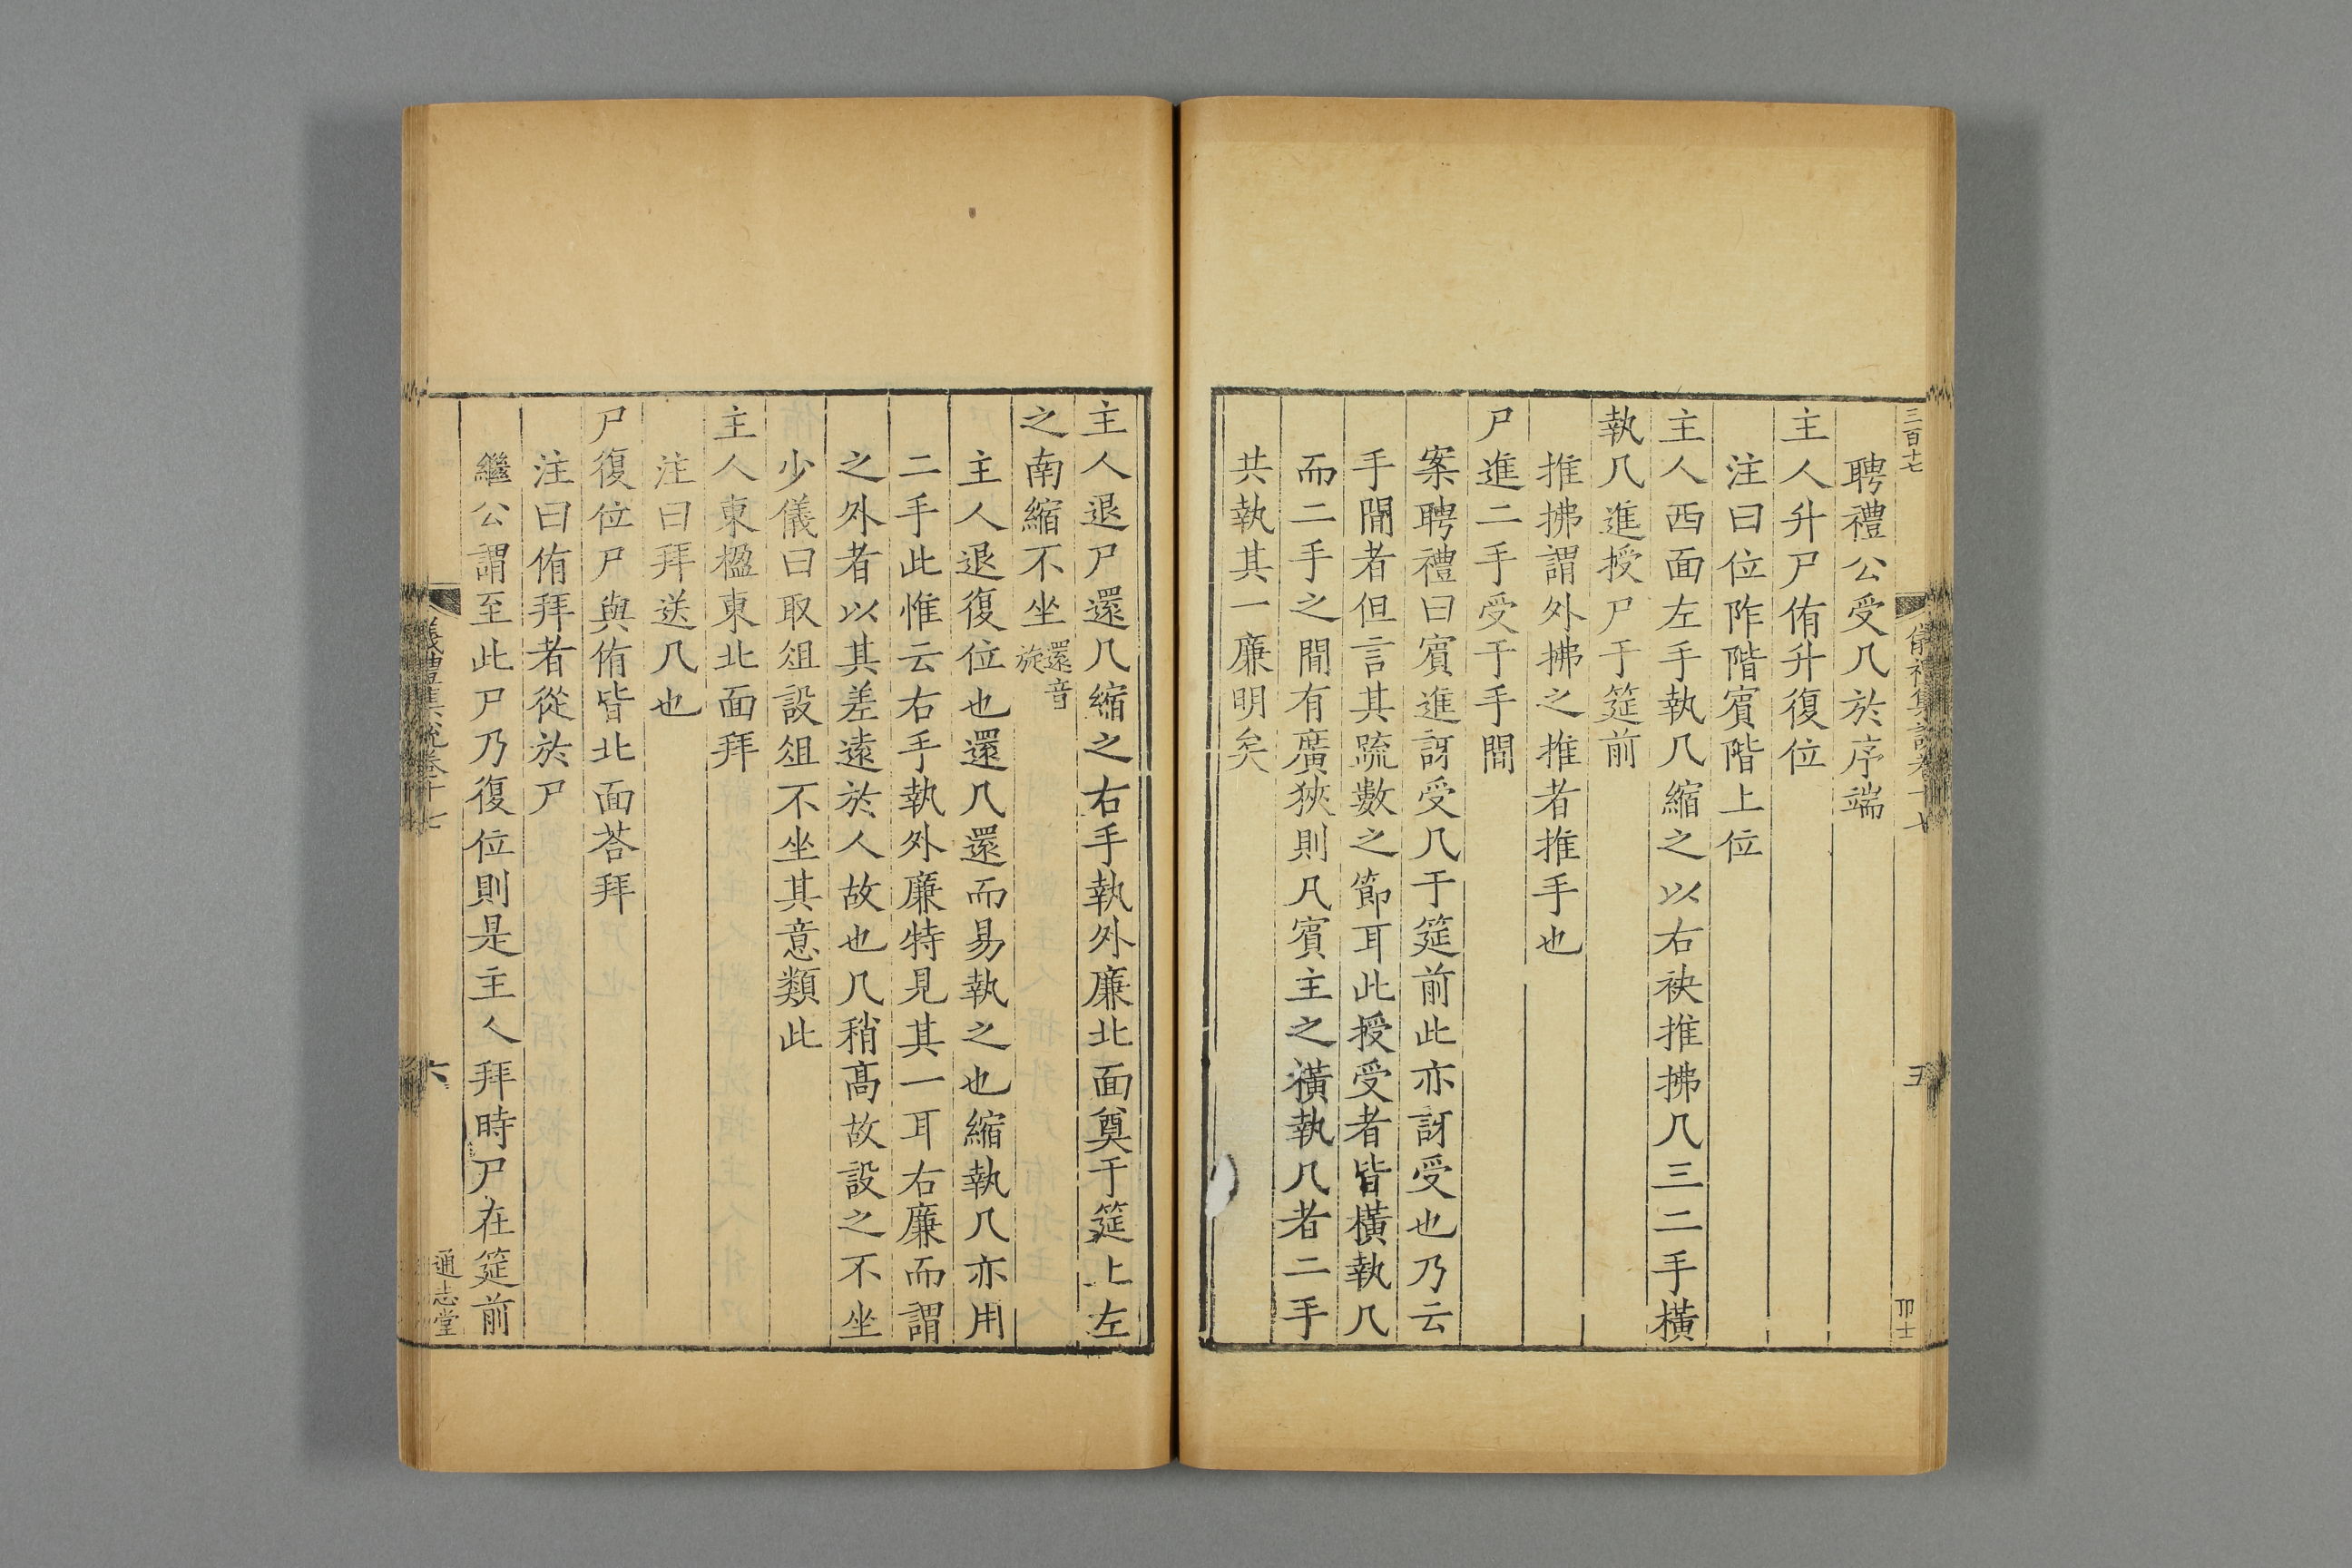 三百十七
聘禮公受几於序端
主人升尸侑升復位
注曰位阼階賓階上位
主人西面左手執几縮之以右袂推拂几三二手橫
執几進授尸于筵前
推拂謂外拂之推者推手也
尸進二手受于手間
案聘禮曰賓進訝受几于筵前此亦訝受也乃云
手間者但言其疏數之節耳此授受者皆橫執几
而二手之間有廣狹則凡賓主之橫執几者二手
共執其一廉明矣
主人退尸還几縮之右手執外廉北面奠于筵上左
之南縮不坐還音旋
主人退復位也還几還而易執之也縮執几亦用
二手此惟云右手執外廉特見其一耳右廉而謂
之外者以其差遠於人故也几稍高故設之不坐
少儀曰取俎設俎不坐其意類此
主人東楹東北面拜
注曰拜送几也
尸復位尸與侑皆北面荅拜
注曰侑拜者從於尸
繼公謂至此尸乃復位則是主人拜時尸在筵前
儀禮集說卷十七
六
通志堂